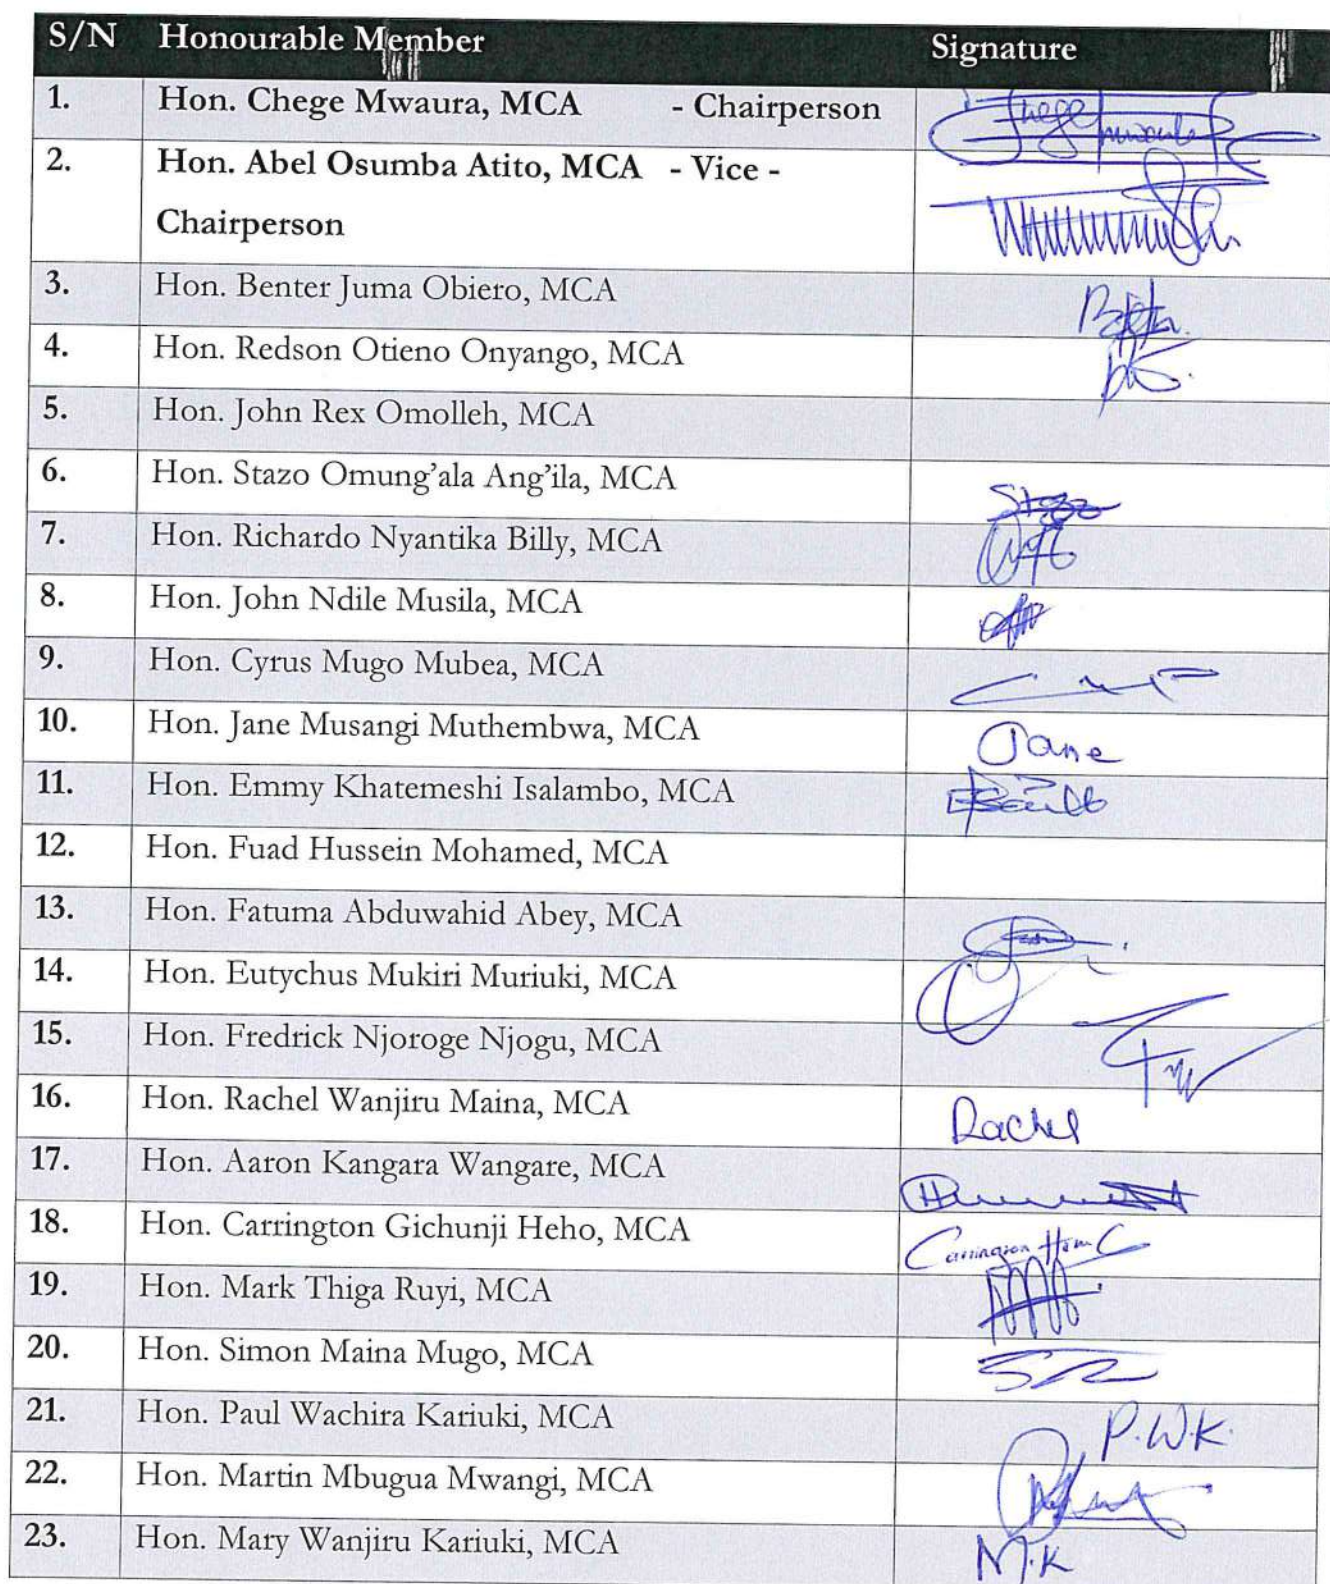 S/N Honourable Member Signature
1. Hon. Chege Mwaura, MCA - Chairperson Chege Mwaura
2. Hon. Abel Osumba Atito, MCA - Vice -
Chairperson
3. Hon. Benter Juma Obiero, MCA
4. Hon. Redson Otieno Onyango, MCA
5. Hon. John Rex Omolleh, MCA
6. Hon. Stazo Omung’ala Ang’ila, MCA Stazo
7. Hon. Richardo Nyantika Billy, MCA
8. Hon. John Ndile Musila, MCA
9. Hon. Cyrus Mugo Mubea, MCA
10. Hon. Jane Musangi Muthembwa, MCA Jane
11. Hon. Emmy Khatemeshi Isalambo, MCA
12. Hon. Fuad Hussein Mohamed, MCA
13. Hon. Fatuma Abduwahid Abey, MCA
14. Hon. Eutychus Mukiri Muriuki, MCA
15. Hon. Fredrick Njoroge Njogu, MCA
16. Hon. Rachel Wanjiru Maina, MCA Rachel
17. Hon. Aaron Kangara Wangare, MCA
18. Hon. Carrington Gichunji Heho, MCA Carrington
19. Hon. Mark Thiga Ruyi, MCA
20. Hon. Simon Maina Mugo, MCA
21. Hon. Paul Wachira Kariuki, MCA P.W.K.
22. Hon. Martin Mbugua Mwangi, MCA
23. Hon. Mary Wanjiru Kariuki, MCA M.K